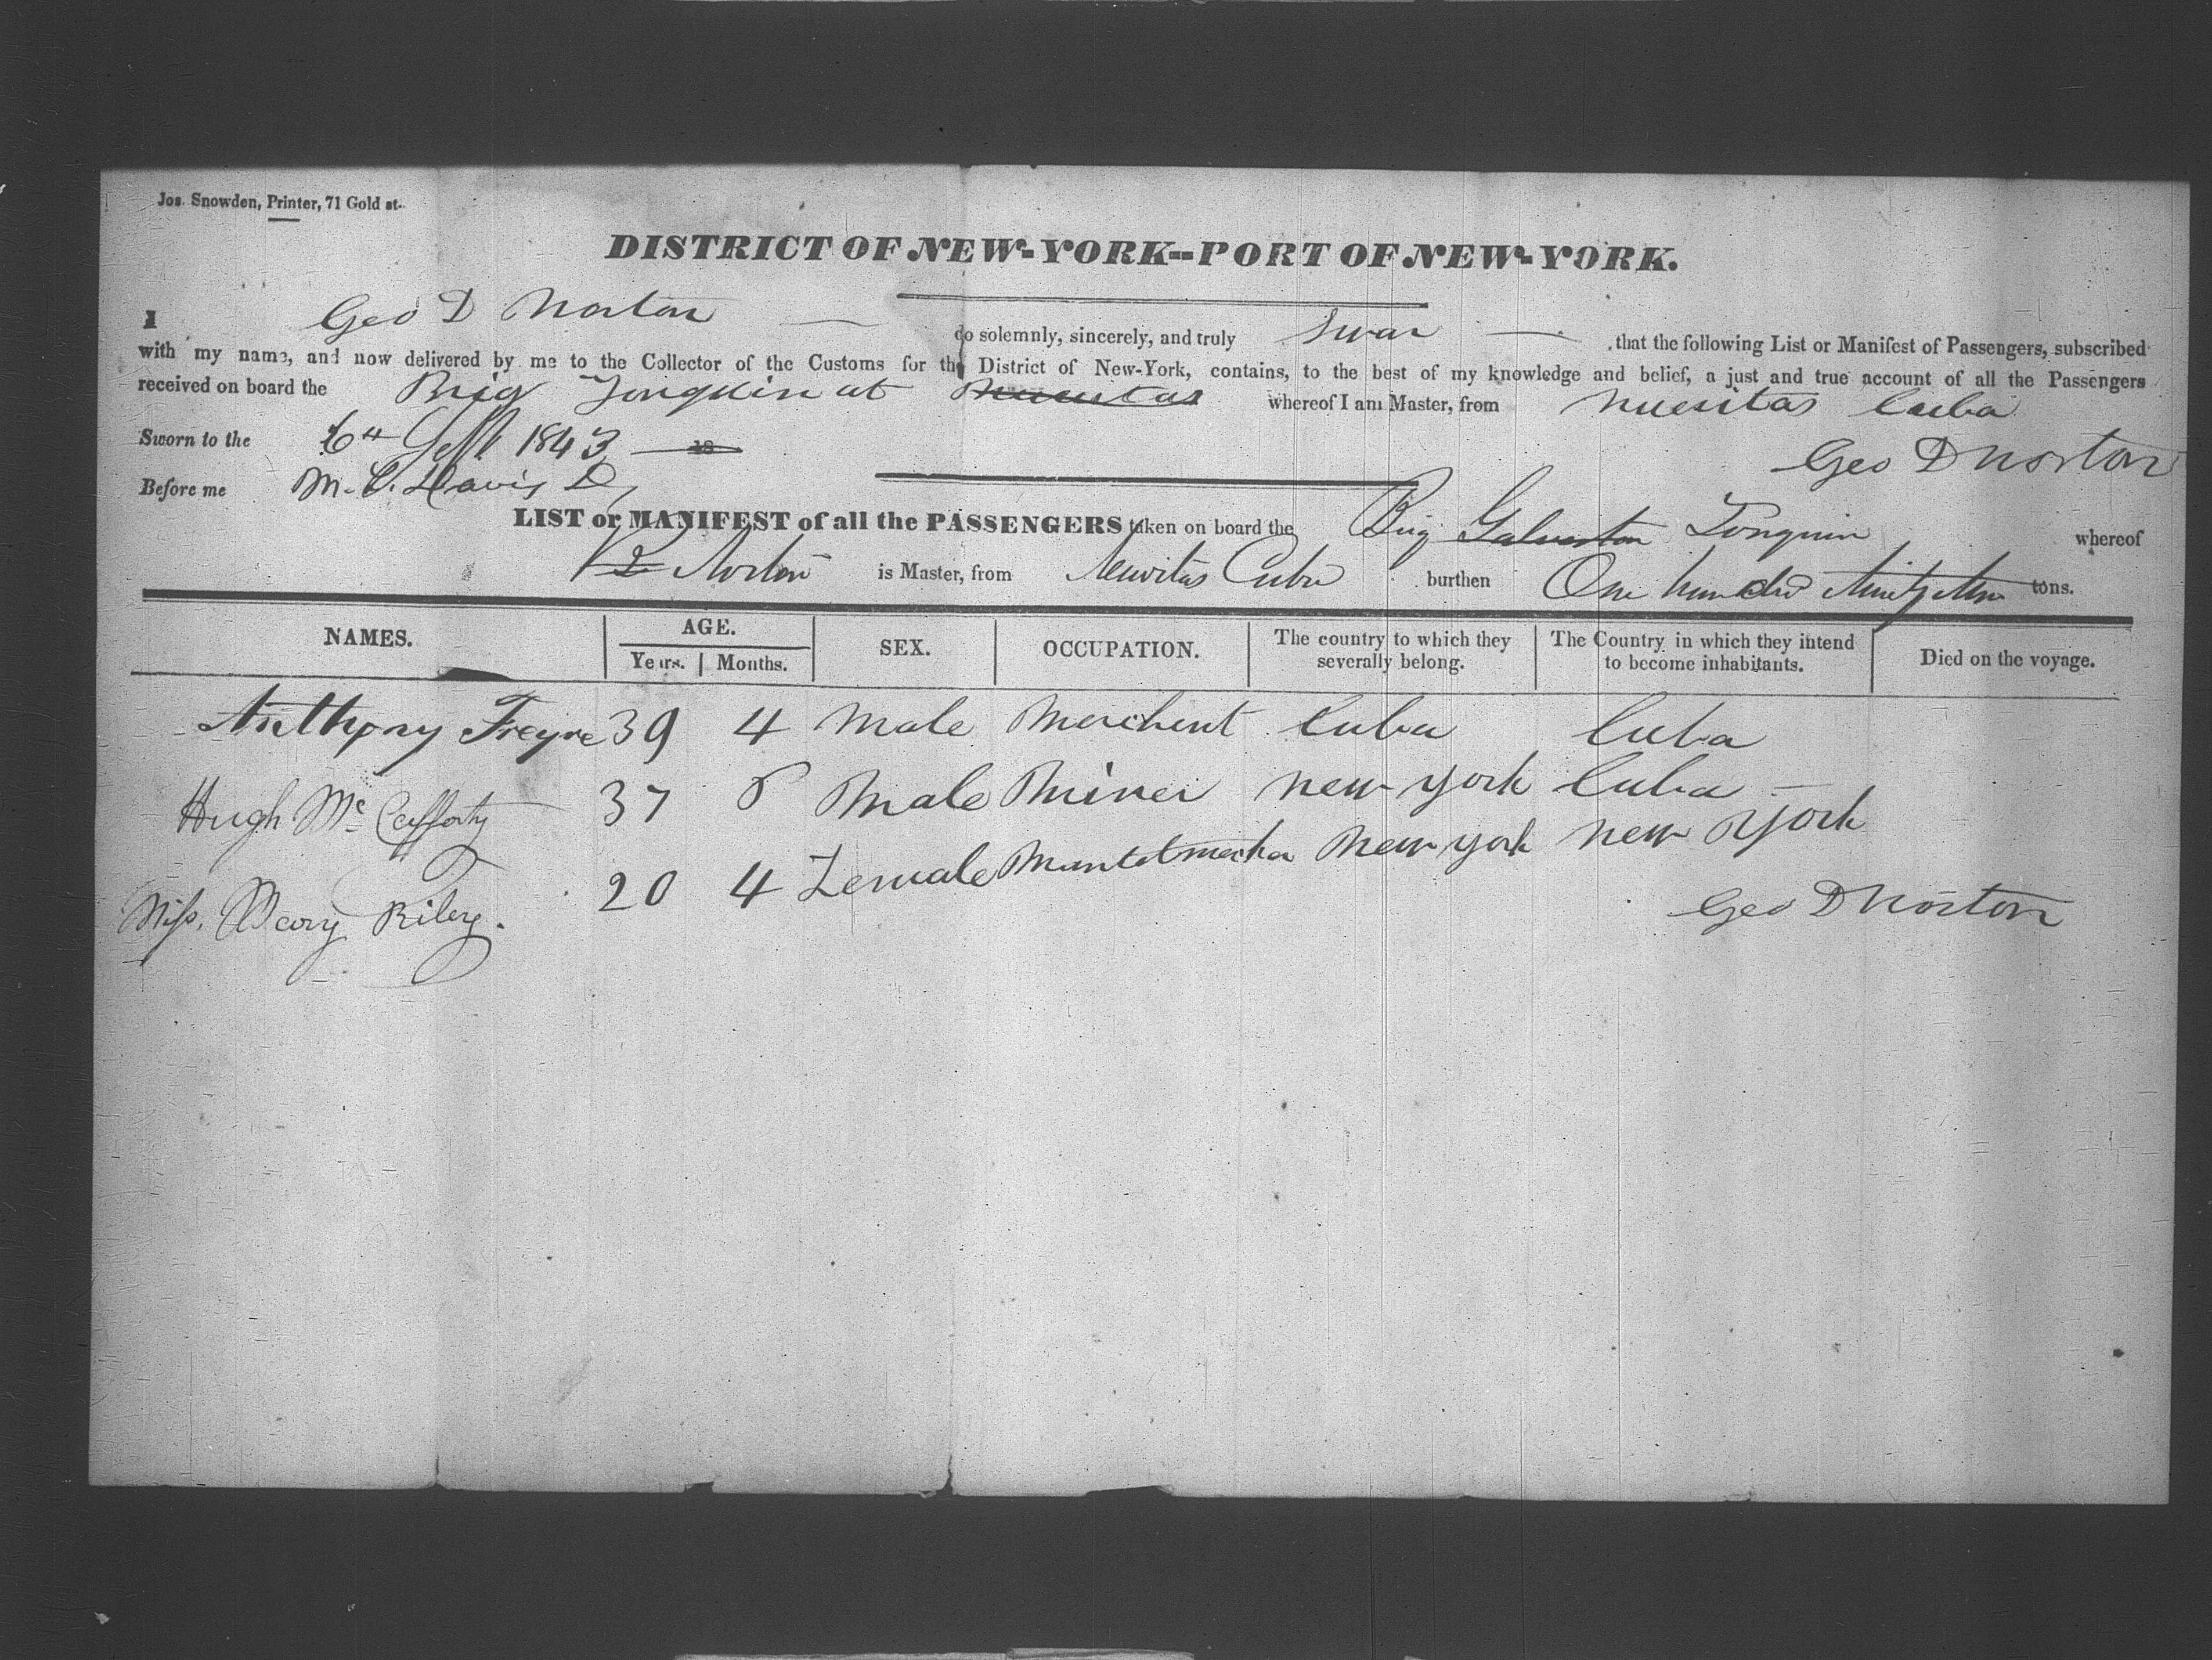 Jos. Snowden, Printer, 71 Gold st.
DISTRICT OF NEW-YORK--PORT OF NEW-YORK.
I Geo D Norton do solemnly, sincerely, and truly Swar that the following List or Manifest of Passengers, subscribed
with my name, and now delivered by me to the Collector of the Customs for the District of New-York, contains, to the best of my knowledge and belief, a just and true account of all the Passengers
received on board the Brig Tonquin at Nuevitas whereof I am Master, from Nuevitas Cuba
Sworn to the 6th Sept 1843 18
Geo D Norton
Before me M. C. Davis D
LIST or MANIFEST of all the PASSENGERS taken on board the Brig Galveston Tonquin whereof
Norton is Master, from Neuvitas Cuba burthen One hundred Ninety tons.
NAMES. AGE. SEX. OCCUPATION. The country to which they severally belong. The Country in which they intend to become inhabitants. Died on the voyage.
Years. Months.
Anthony Freyre 39 4 Male Merchent Cuba Cuba
Hugh Mc Cafferty 37 8 Male Miner New York Cuba
Miss. Mary Riley. 20 4 Female Mantetmecker New York New York
Geo D Norton